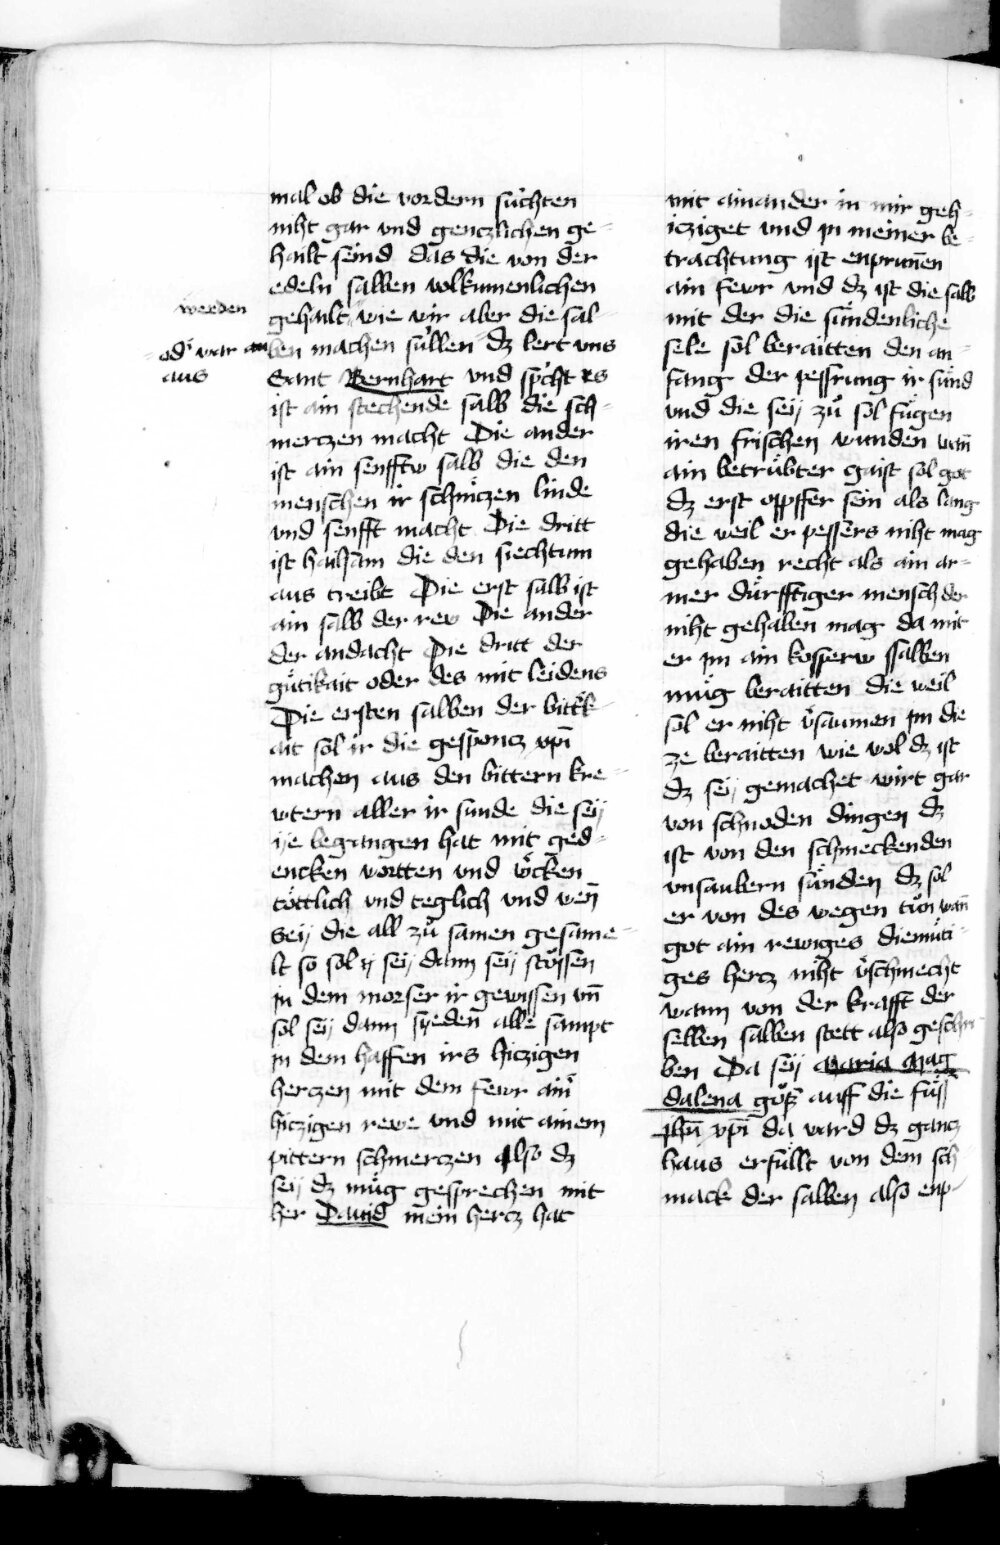 mal ob die vordern suchten
niht gar vnd genczlichen ge-
hailt seind das die von der
edeln salben volkumenlichen
werden
gehailt wie wir aber die sal-
- odͥ war an
aus
ben machen süllen dz lert vns
Sant Bernhart vnd spͥcht es
ist ain stechende salb die sch-
mertzen macht Die ander
ist ain senfftw salb die den
menschen ir schmͥczen linde
vnd senfft macht Die dritt
ist hailsam die den siechtum
aus treibt Die erst salb ist
ain salb der rew Die ander
der andacht Die dritt der
gütikait oder des mit leidens
Die ersten salben der bittͥk
ait sol ir die gesponcz xpi̅
machen aus den bittern kre-
wtern aller ir sunde die seÿ
ÿe begangen hat mit ged-
encken wortten vnd wͥcken
töttlich vnd teglich vnd wen̅
Seÿ die all zů samen gesame-
lt so sol ÿ seÿ dann seÿ stössen
jn dem morser ir gewissen vn̅
sol seÿ dann syeden alle sampt
jn dem haffen irs hiczigen
herczen mit dem fewr ainͥ
hiczigen rewe vnd mit ainem
pittern schmerczen Also dz
seÿ dz müg gesprechen mit
her Dauid mein hercz hat
mit ainander in mir geh-
icziget vnd jn meiner be-
trachtung ist enprun̅en
ain fewr vnd dz ist die salb
mit der die sündenliche
sele sol beraitten den an-
fang der pessrung ir sünd
vnd die seÿ zů sol fügen
iren frischen wunden wan̅
ain betrübter gaist sol got
dz erst opffer sein als lang
die weil er pessers niht mag
gehaben recht als ain ar-
mer dürfftiger mensch der
niht gehaben mag da mit
er jm ain kosperw salben
müg beraitten die weil
sol er niht vͥsaumen jm die
ze beraitten wie wol dz ist
dz seÿ gemachet wirt gar
von schnoden dingen dz
ist von den schmeckenden
vnsaubern sünden dz sol
er von des wegen tůn wan̅
got ain rewiges diemüti-
ges hercz niht vͥschmecht
wann von der krafft der
selben salben stett also geschri-
ben Da seÿ Maria Mag
dalena göß auff die füß
jhu̅ xpi̅ da ward dz gancz
haus erfüllt von dem sch
mack der salben also enp-